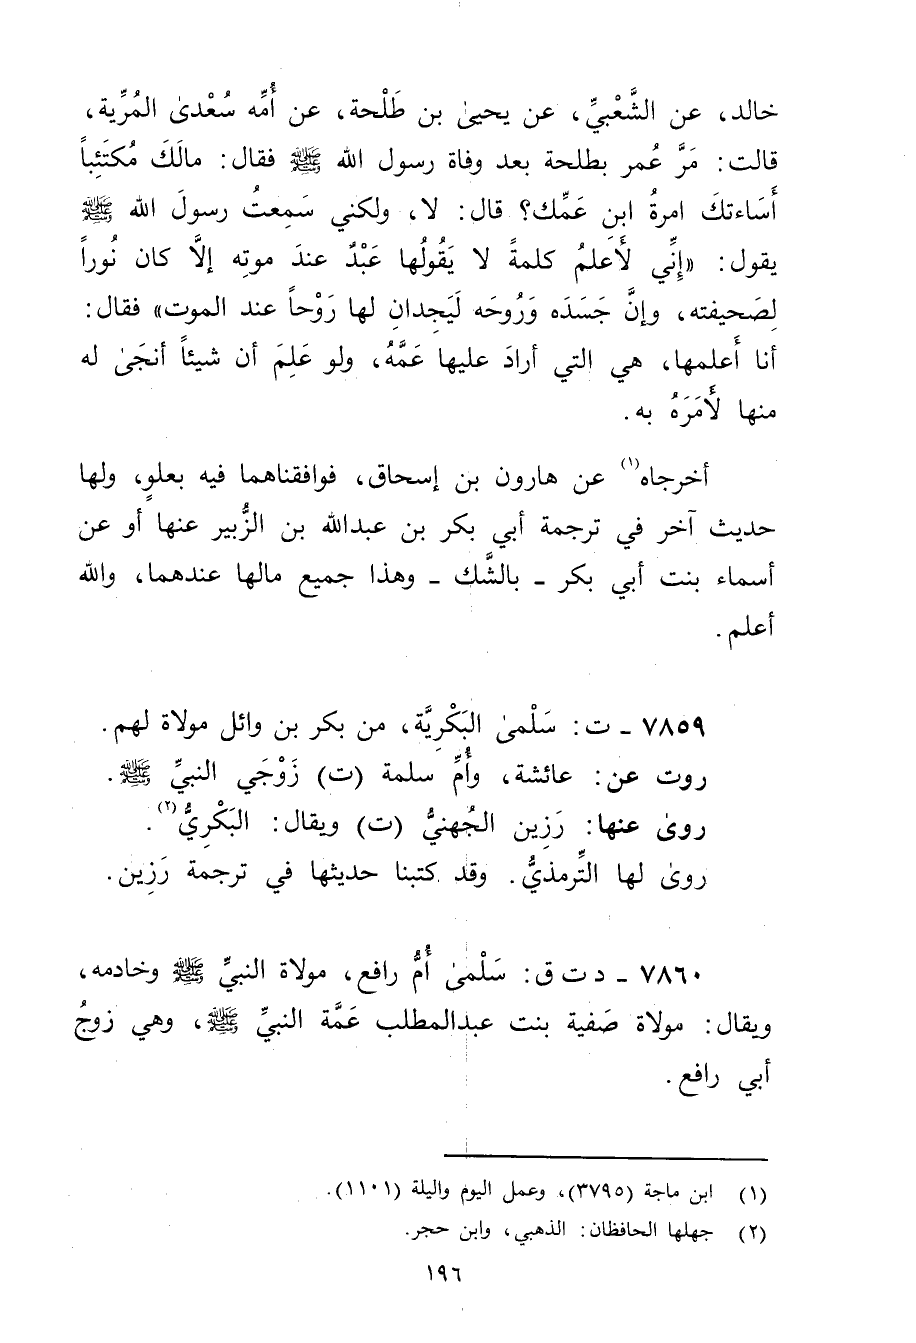 خالد، عن الشَّعْبيِّ، عن يحيىٰ بن طَلْحة، عن أُمِّه سُعْدىٰ المُرِّية،
قالت: مَرَّ عُمر بطلحة بعد وفاة رسول الله ﷺ فقال: مالَكَ مُكتَئِباً
أَسَاءتكَ امرةُ ابنِ عَمِّك؟ قال: لا، ولكني سَمِعتُ رسولَ الله ﷺ
يقول: «إنِّي لأَعلمُ كلمةً لا يَقُولُها عَبْدٌ عندَ موتِه إلاَّ كان نُوراً
لِصَحيفته، وإنَّ جَسَدَه وَرُوحَه لَيَجدانِ لها رَوْحاً عند الموت» فقال:
أنا أَعلمها، هي التي أرادَ عليها عَمَّهُ، ولو عَلِمَ أن شيئاً أنجَىٰ له
منها لأَمَرَهُ به.
أخرجاه(١) عن هارون بن إسحاق، فوافقناهما فيه بعلوٍ، ولها
حديث آخر في ترجمة أبي بكر بن عبدالله بن الزُّبير عنها أو عن
أسماء بنت أبي بكر ـ بالشَّك ـ وهذا جميع مالها عندهما، والله
أعلم.
٧٨٥٩ ـ ت: سَلْمىٰ البَكْرِيَّة، من بكر بن وائل مولاة لهم.
روت عن: عائشة، وأُمِّ سلمة (ت) زَوْجَي النبيِّ ﷺ.
روىٰ عنها: رَزِين الجُهنيُّ (ت) ويقال: البَكْريُّ(٢).
روىٰ لها التِّرمذيُّ. وقد كتبنا حديثها في ترجمة رَزِين.
٧٨٦٠ ـ د ت ق: سَلْمىٰ أُمُّ رافع، مولاة النبيِّ ﷺ وخادمه،
ويقال: مولاة صَفية بنت عبدالمطلب عَمَّة النبيِّ ﷺ، وهي زوجُ
أبي رافع.
(١) ابن ماجة (٣٧٩٥)، وعمل اليوم والليلة (١١٠١).
(٢) جهلها الحافظان: الذهبي، وابن حجر.
١٩٦